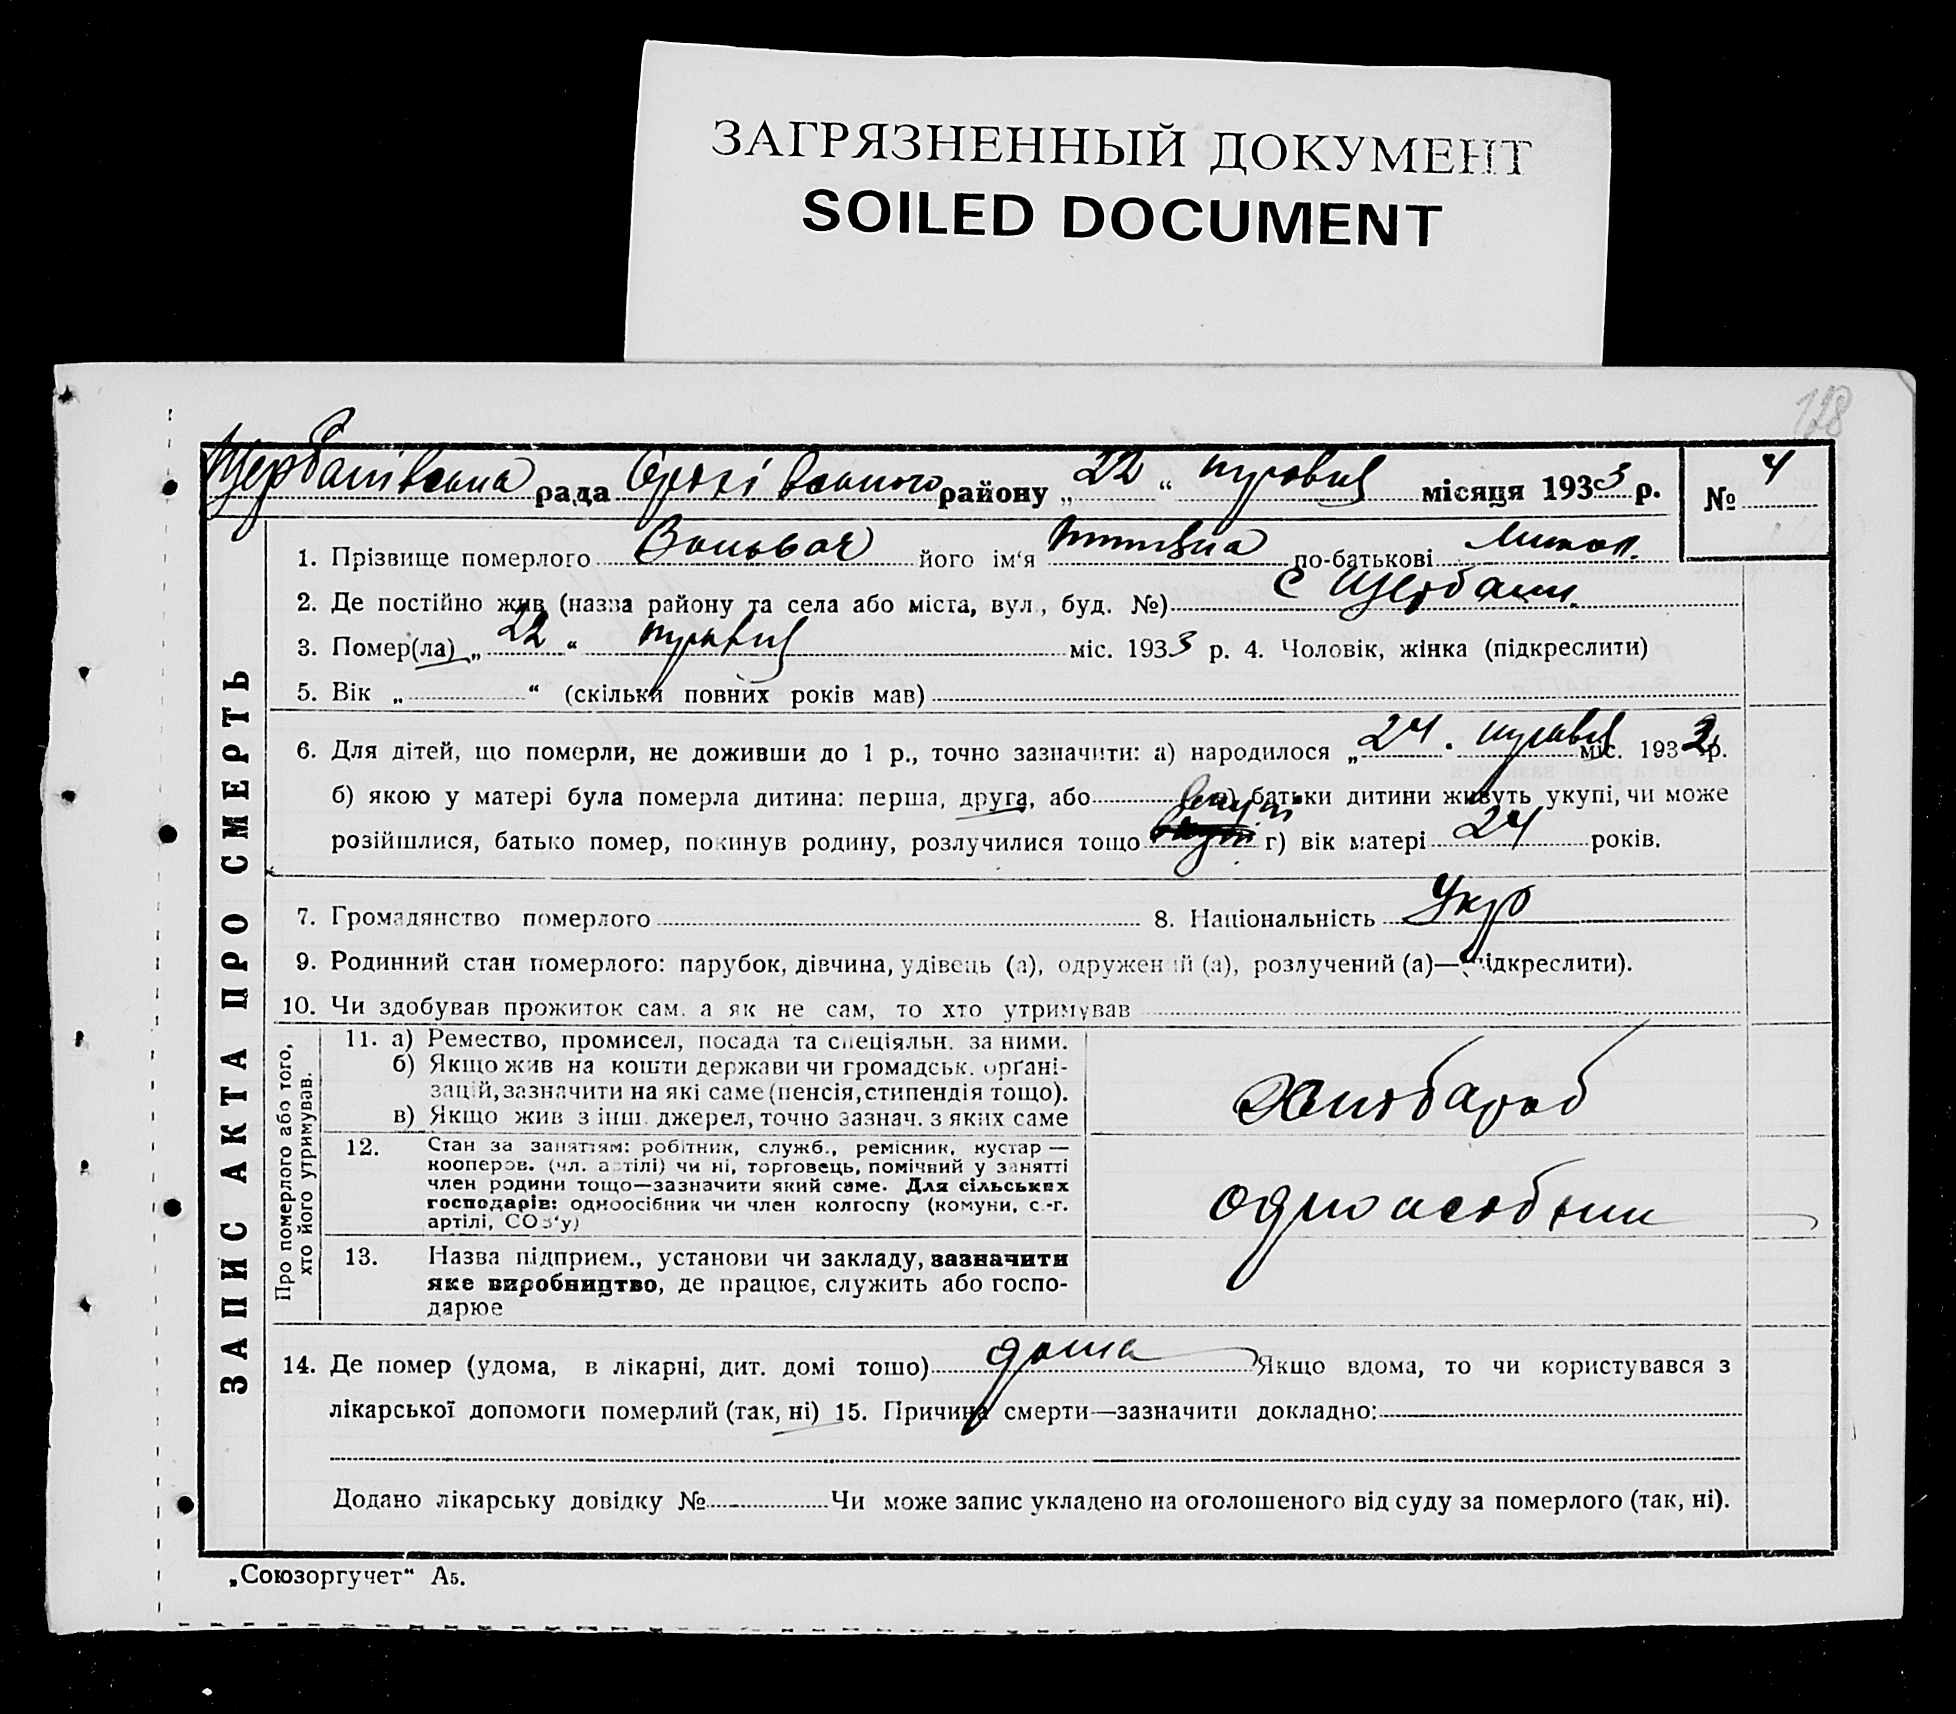 ЗАГРЯЗНЕННЫЙ ДОКУМЕНТ
SOILED DOCUMENT
128
Щербанівська рада районy „ 22 “ травня місяця 1933 р. № 4
ЗАПИС АКТА ПРО СМЕРТЬ
1. Прізвище померлого його ім‘я по-батькові Микол.
2. Де постійно жив (назва району та села або міста, вул., буд. №) С Щербани.
3. Помер(ла) „ 22 “ травня міс. 1933 р. 4. Чоловік, жінка (підкреслити)
5. Вік „ “ (скільки повних років мав)
6. Для дітей, що померли, не доживши до 1 р., точно зазначити: а) народилося „ 24 . травня міс. 1932 р.
б) якою у матері була померла дитина: перша, друга, або в) батьки дитини живуть укупі, чи може
розійшлися, батько помер, покинув родину, розлучилися тощо г) вік матері 24 років.
7. Громадянство померлого 8. Національність Укр
9. Родинний стан померлого: парубок, дівчина, удівець (а), одружений (а), розлучений (а)—(підкреслити).
10. Чи здобував прожиток сам, а як не сам, то хто утримував
Про померлого або того,
хто його утримував.
11. а) Ремество, промисел, посада та спеціяльн. за ними.
б) Якщо жив на кошти держави чи громадськ. орґані-
зацій, зазначити на які саме (пенсія, стипендія тощо).
в) Якщо жив з інш. джерел, точно зазнач. з яких саме
Хлібороб
12. Стан за заняттям: робітник, служб., ремісник, кустар —
кооперов. (чл. артілі) чи ні, торговець, помічний у занятті
член родини тощо—зазначити який саме. Для сільських
господарів: одноосібник чи член колгоспу (комуни, с.-г.
артілі, СОЗ‘у)
одноособник
13. Назва підприєм., установи чи закладу, зазначити
яке виробництво, де працює, служить або госпо-
дарює
14. Де помер (удома, в лікарні, дит. домі тощо) дома Якщо вдома, то чи користувався з
лікарської допомоги померлий (так, ні) 15. Причина смерти—зазначити докладно:
Додано лікарську довідку № Чи може запис укладено на оголошеного від суду за померлого (так, ні).
„Союзоргучет“ А5.